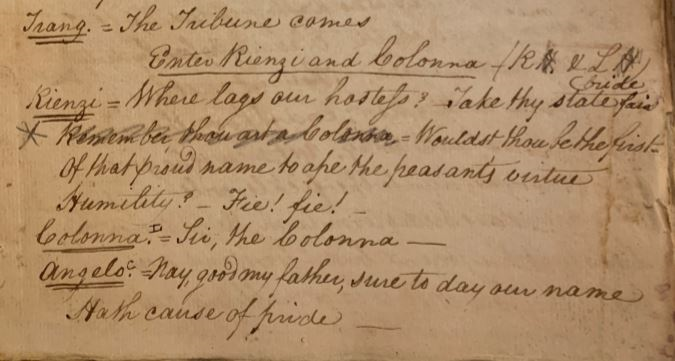 Frang. = The Tribune comes
Enter Rienzi and Colonna - (R H. & L H)
Rienzi = Where lags our hostess? - Take thy state fair bride
Remember thou art a Colonna = Wouldst thou be the first
Of that proud name to ape the peasant's virtue
Humility? - Fie! fie! -
Colonna. = Sir, the Colonna -
Angelo. = Nay, good my father, sure to day our name
Hath cause of pride -